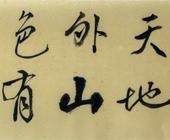 天地
外山
色有